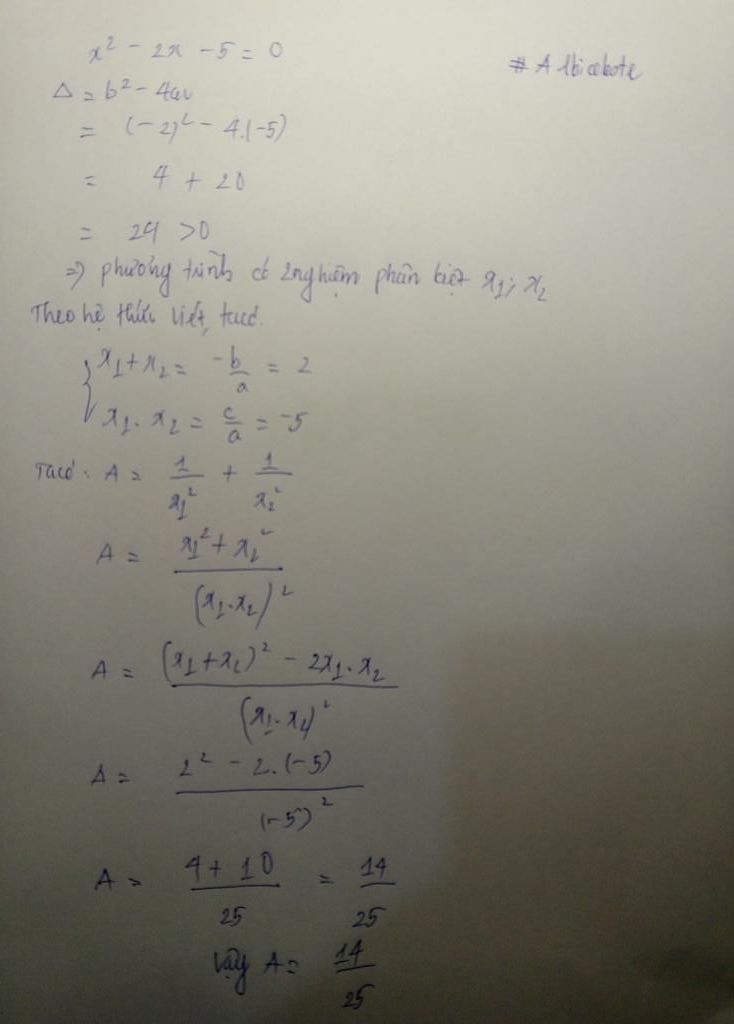 x² - 2x - 5 = 0
# Albicebote
Δ = b² - 4ac
= (-2)² - 4.(-5)
= 4 + 20
= 24 > 0
=> phương trình có 2 nghiệm phân biệt x₁; x₂
Theo hệ thức Viét, ta có.
{ x₁ + x₂ = -b/a = 2
x₁ . x₂ = c/a = -5
Ta có: A = 1/x₁² + 1/x₂²
A = (x₁² + x₂²)/(x₁.x₂)²
A = ((x₁ + x₂)² - 2x₁.x₂)/(x₁.x₂)²
A = (2² - 2.(-5))/(-5)²
A = (4 + 10)/25 = 14/25
Vậy A = 14/25